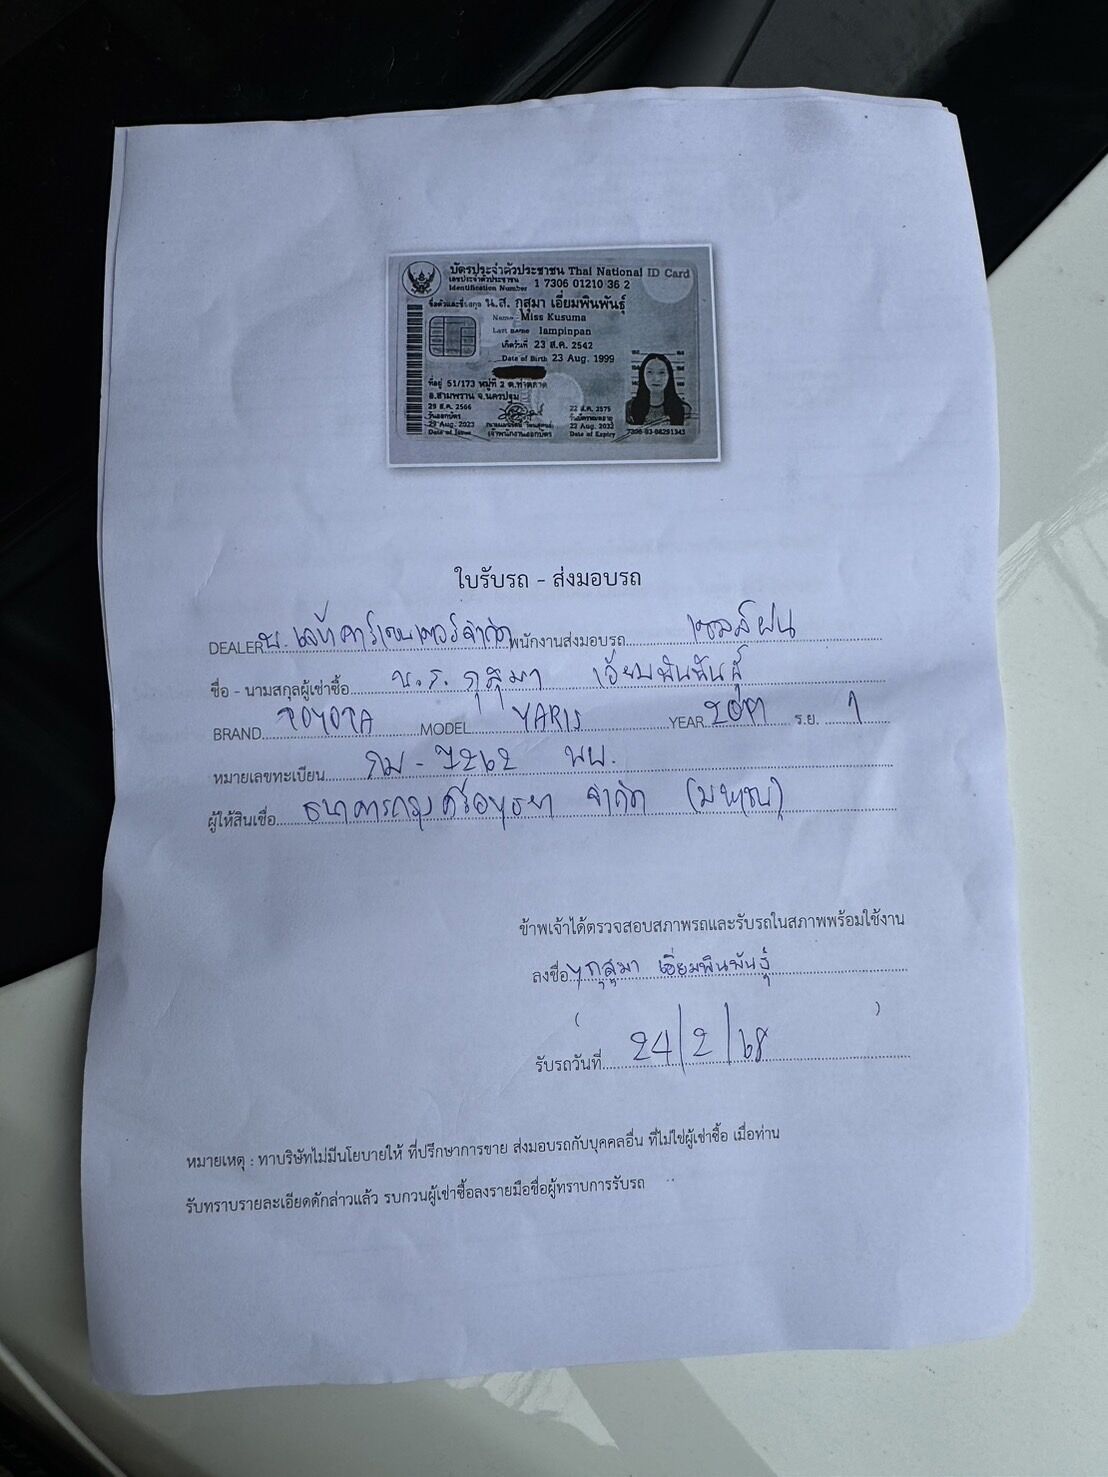 บัตรประจำตัวประชาชน Thai National ID Card
เลขประจำตัวประชาชน
Identification Number 1 7306 01210 36 2
ชื่อตัวและชื่อสกุล น.ส. กุสุมา เอี่ยมพินพันธุ์
Name Miss Kusuma
Last name Iampinpan
เกิดวันที่ 23 ส.ค. 2542
Date of Birth 23 Aug. 1999
ที่อยู่ 51/173 หมู่ที่ 2 ต.ท่าตลาด
อ.สามพราน จ.นครปฐม
29 ส.ค. 2566 22 ส.ค. 2575
วันออกบัตร วันบัตรหมดอายุ
29 Aug. 2023 22 Aug. 2032
Date of Issue เจ้าพนักงานออกบัตร Date of Expiry
ใบรับรถ - ส่งมอบรถ
DEALER พนักงานส่งมอบรถ เซลล์ฝน
ชื่อ - นามสกุลผู้เช่าซื้อ น.ส. กุสุมา เอี่ยมพินพันธุ์
BRAND TOYOTA MODEL YARIS YEAR ร.ย. 1
หมายเลขทะเบียน
ผู้ให้สินเชื่อ ธนาคารกรุงศรีอยุธยา จำกัด (มหาชน)
ข้าพเจ้าได้ตรวจสอบสภาพรถและรับรถในสภาพพร้อมใช้งาน
ลงชื่อ กุสุมา เอี่ยมพินพันธุ์
( )
รับรถวันที่ 24/2/68
หมายเหตุ : ทาบริษัทไม่มีนโยบายให้ ที่ปรึกษาการขาย ส่งมอบรถกับบุคคลอื่น ที่ไม่ใช่ผู้เช่าซื้อ เมื่อท่าน
รับทราบรายละเอียดดักล่าวแล้ว รบกวนผู้เช่าซื้อลงรายมือชื่อผู้ทราบการรับรถ